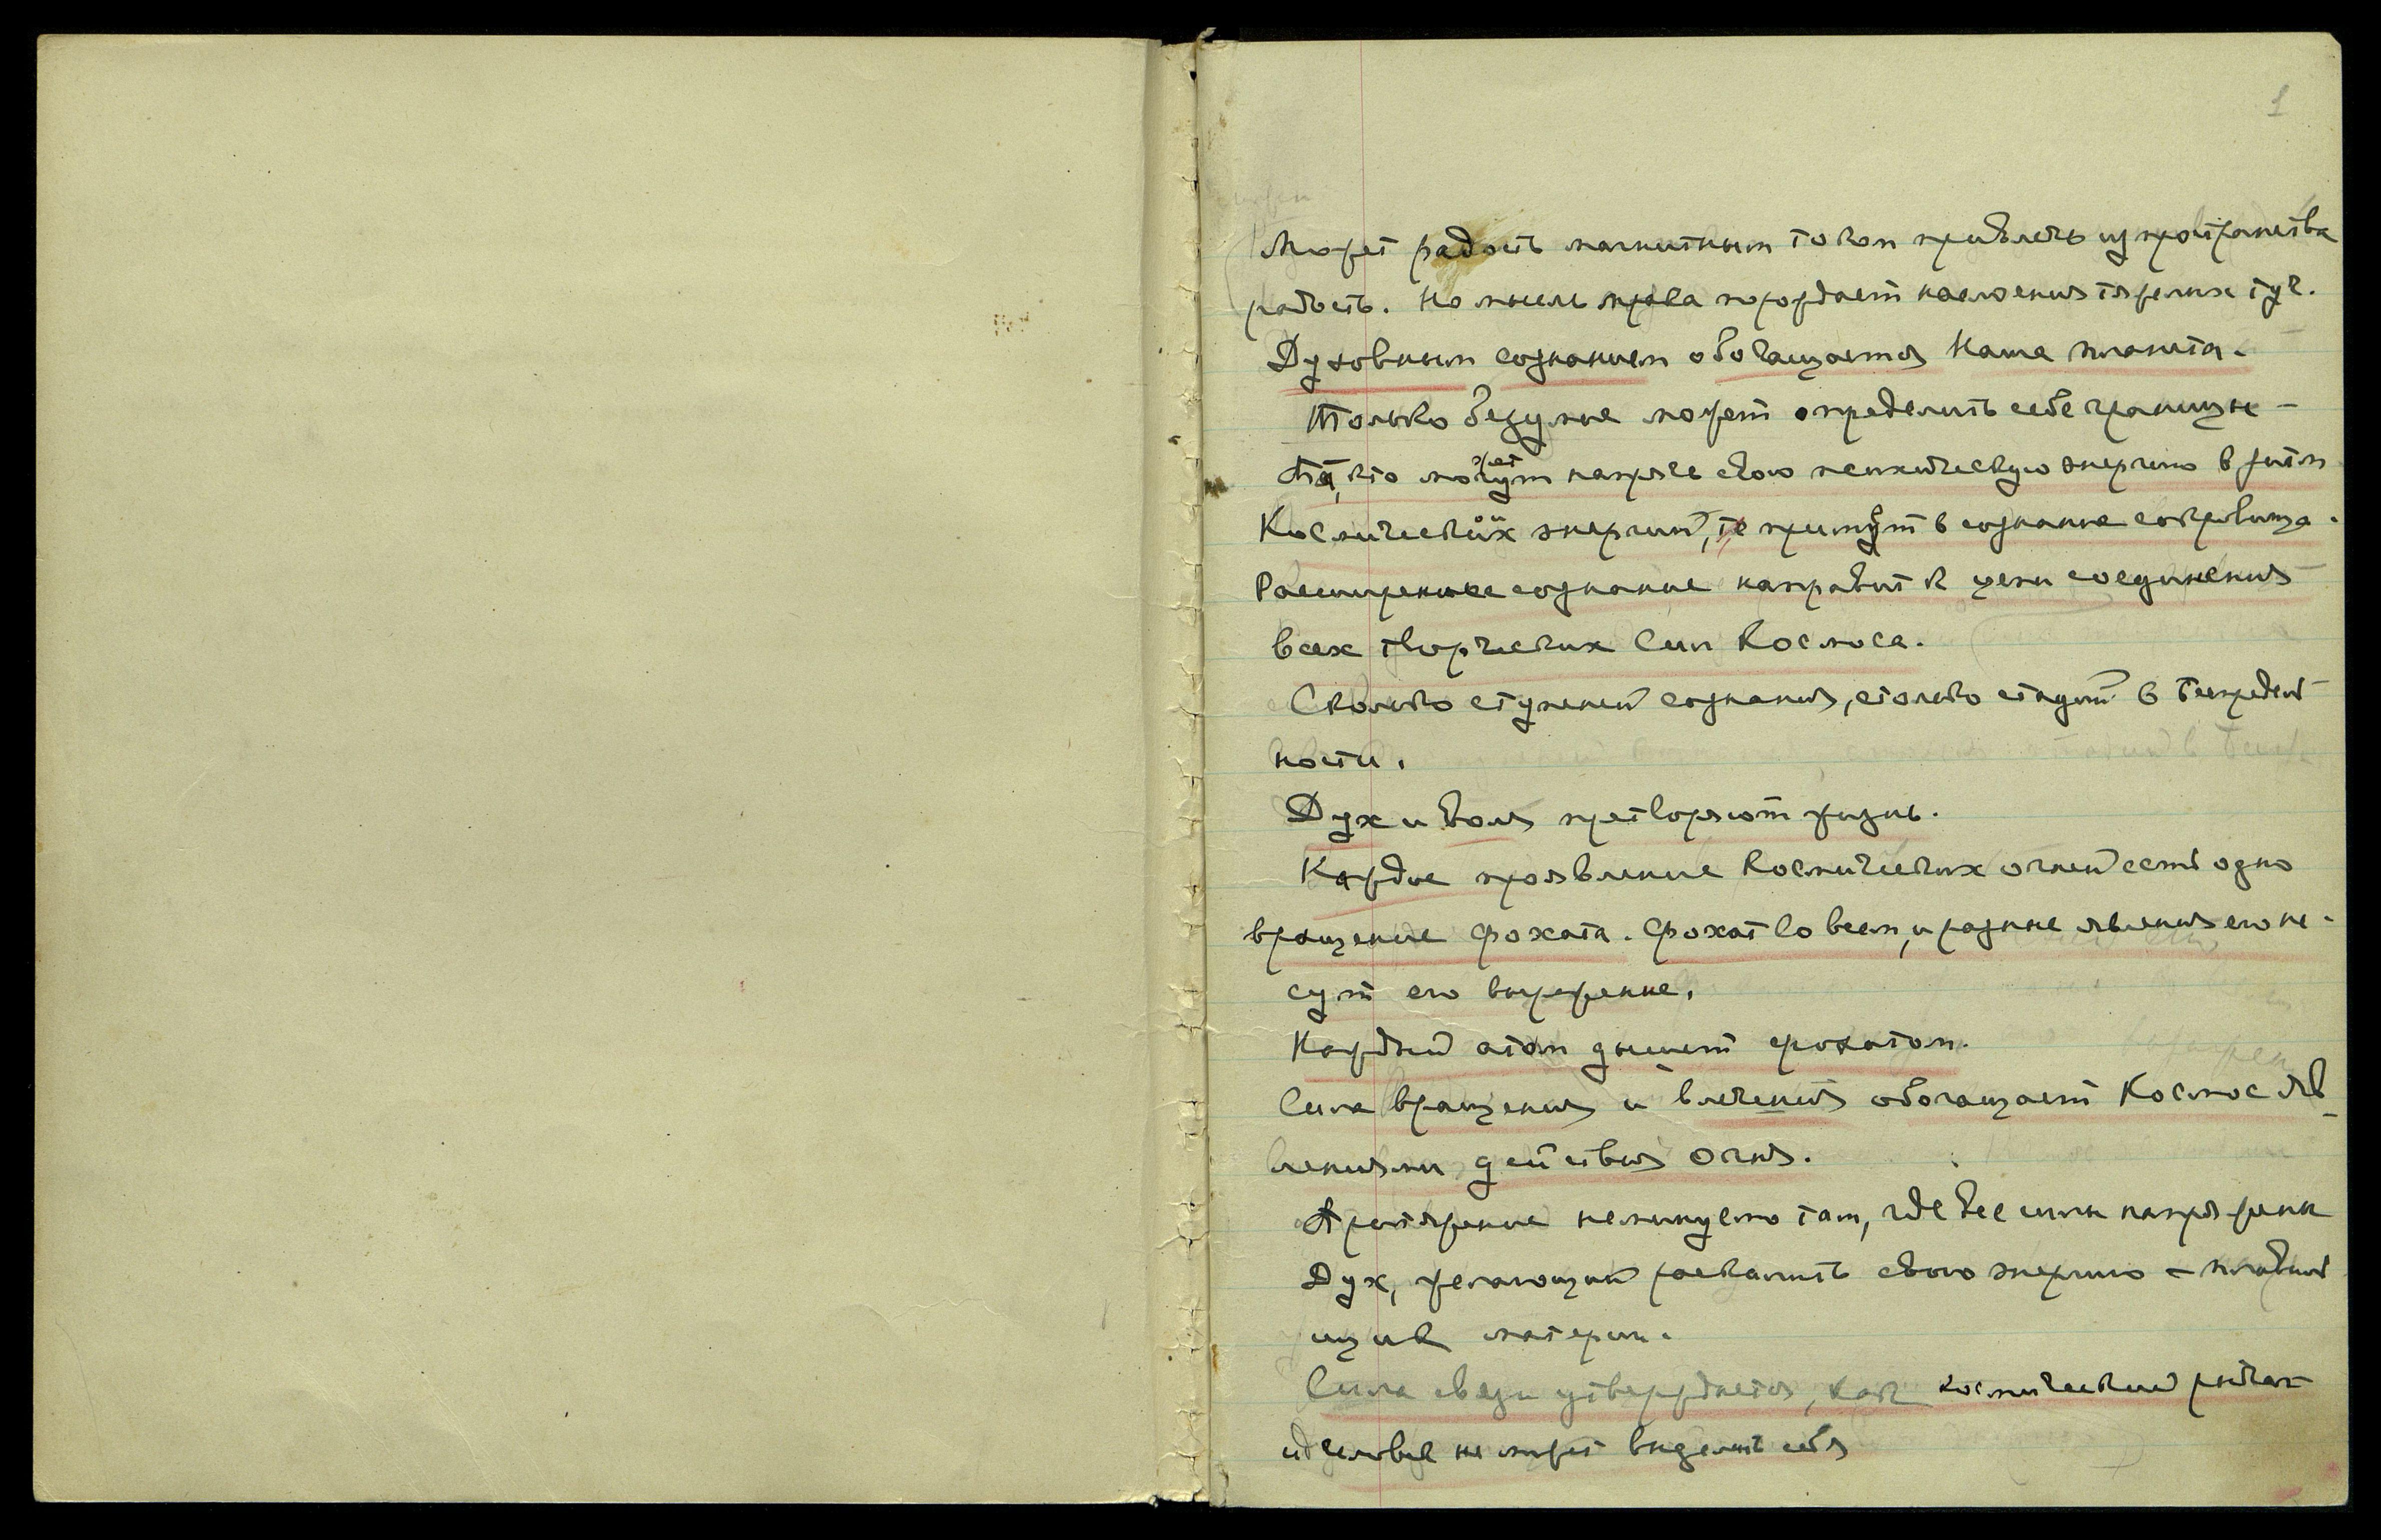 1
Может радость магнитным током привлечь из пространства
радость. Но мысль мрака порождает наслоения тяжелых туч.
Духовным сознанием обогащается Наша планета.
Только безумие может определить себе границы –
Та, кто может напрячь свою психическую энергию в ритм
Космических энергий, те примут в сознание сокровища.
Расширенное сознание направит к цепи соединения
всех творческих Сил Космоса.
Сколько ступеней сознания, столько стадий в Беспредель
ности.
Дух и воля претворяют жизнь.
Каждое проявление Космических огней есть одно
вращение фохата. Фохат во всем, и разные явления его не-
сут его выражение.
Каждый атом дышит фохатом.
Сила вращения и влечения обогащает Космос яв
лениями действия Огня.
Притяжение неминуемо там, где все силы напряжены
Дух, желающий раскалить свою энергию – плавиль
щик материи.
Сила связи утверждается, как космический рычаг
и человек не может выделить себя